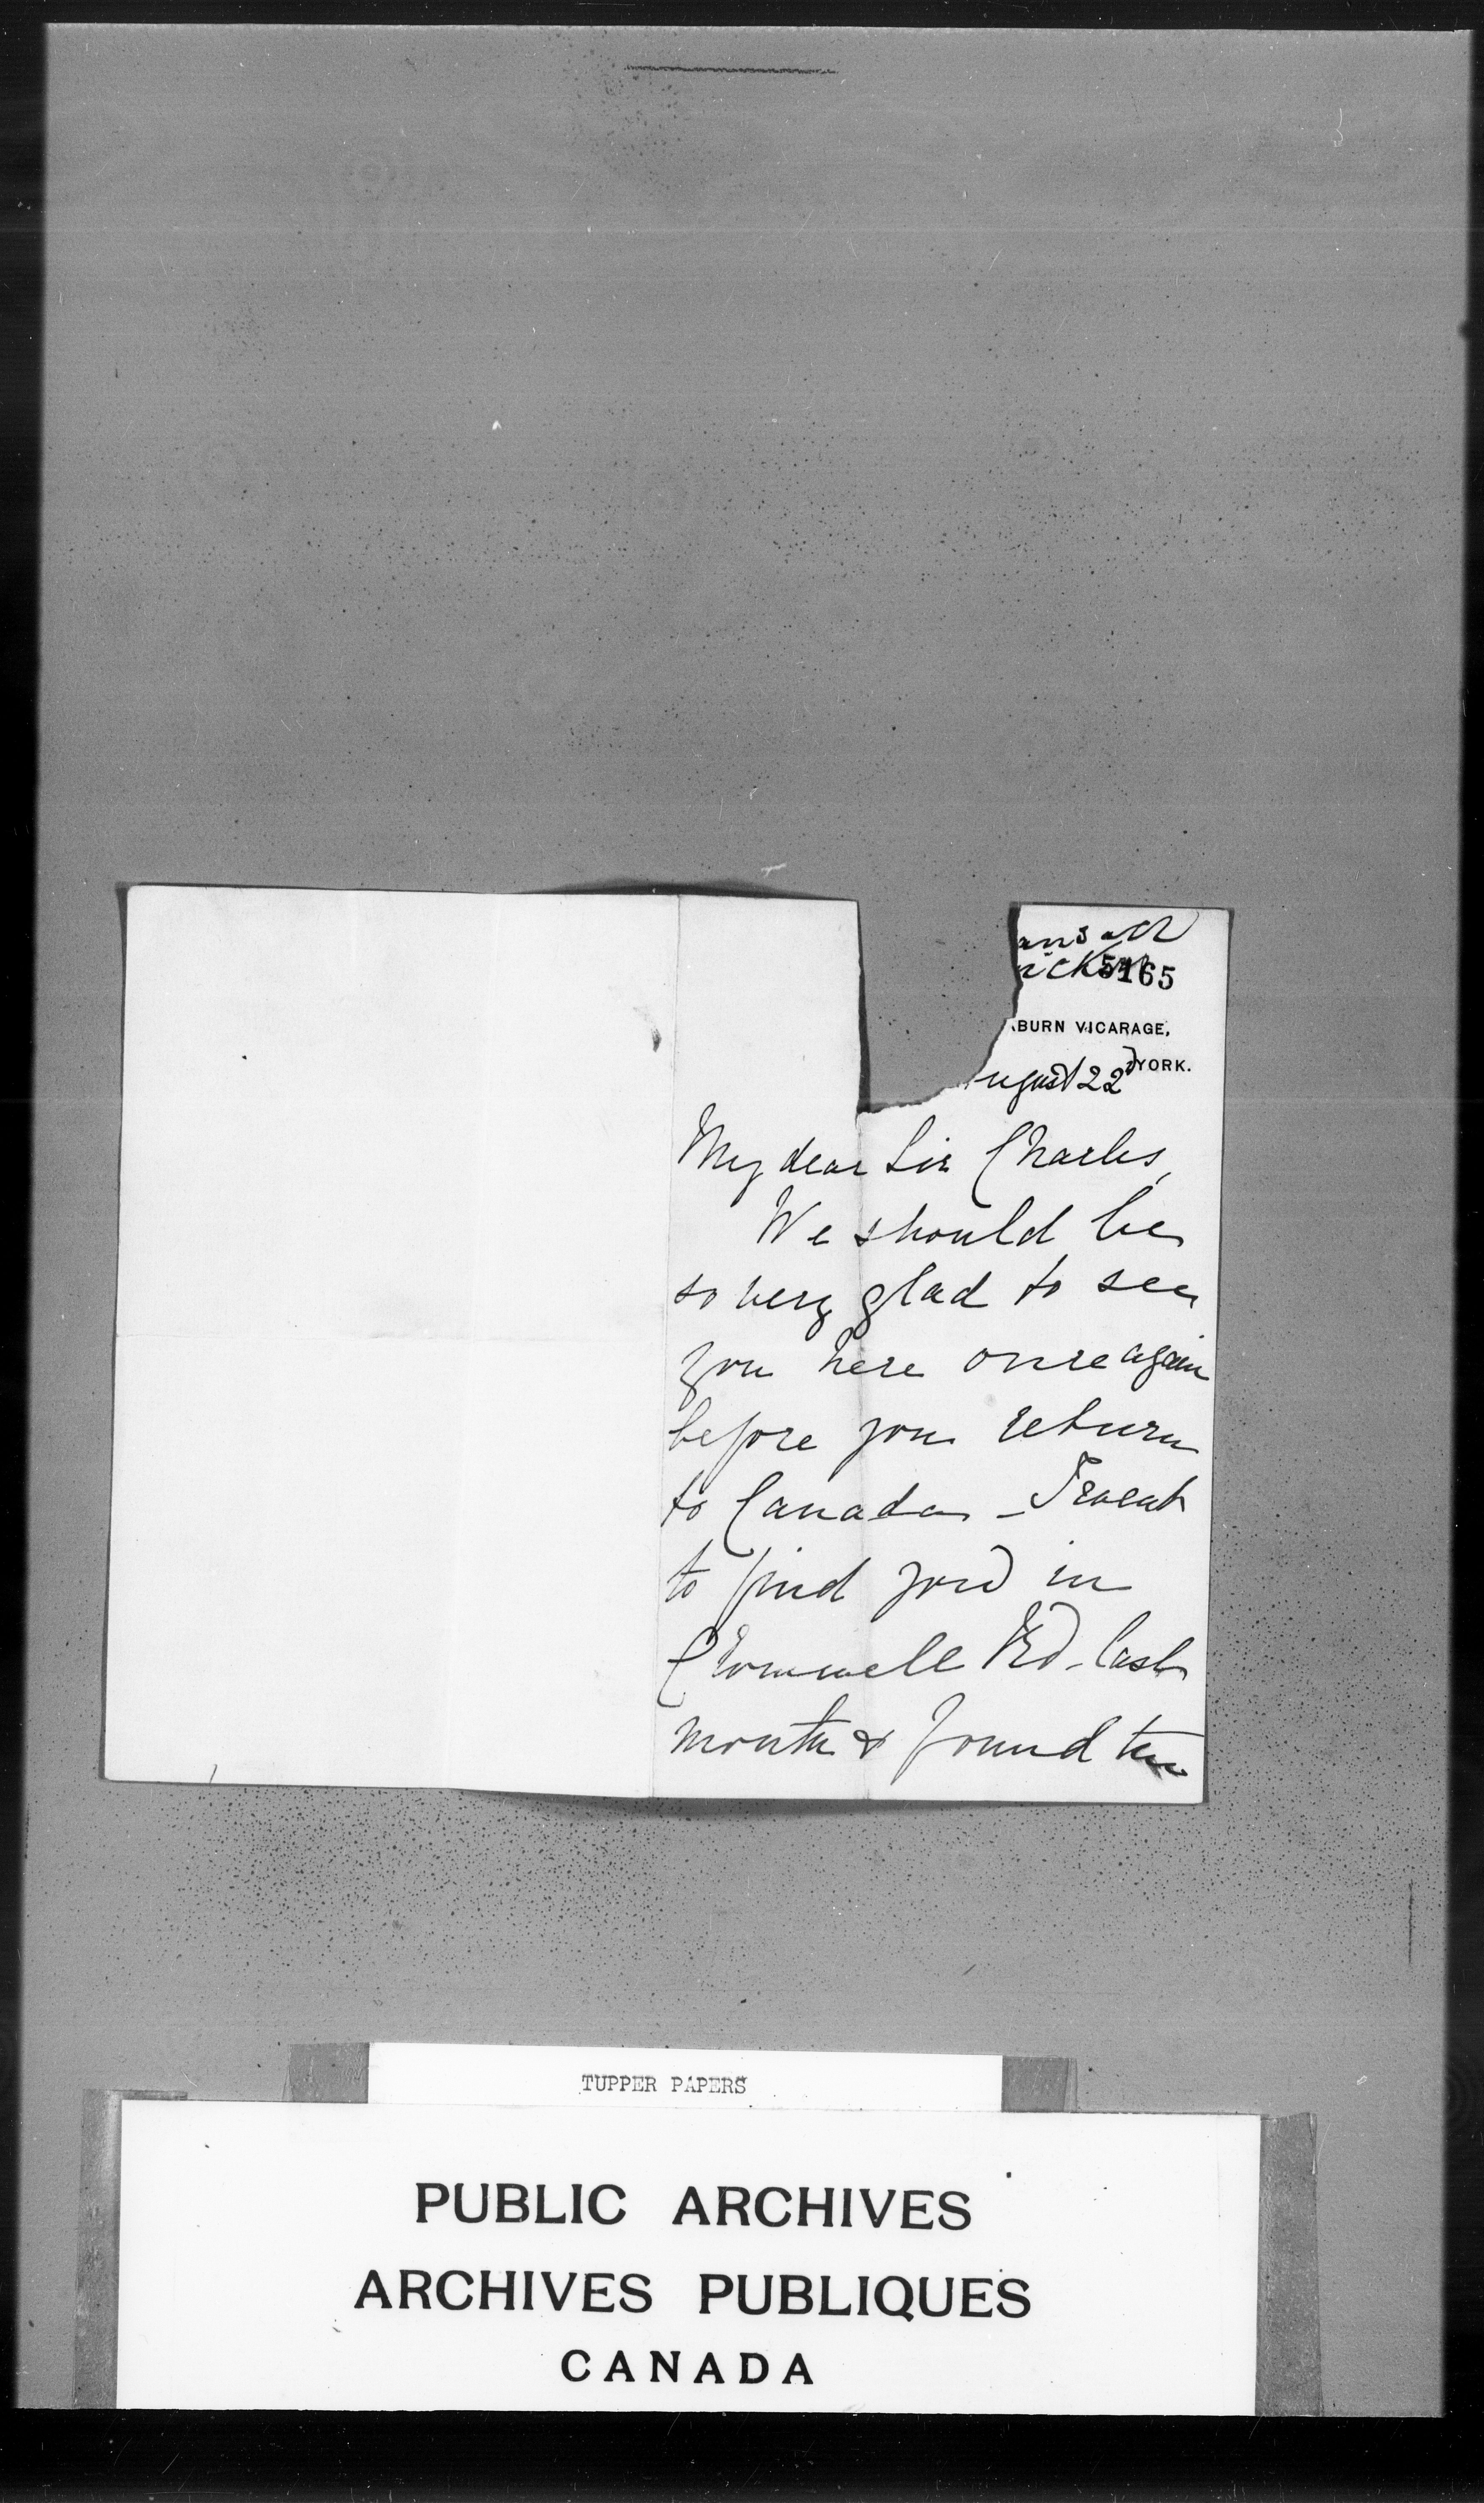 ans
5165
BURN VICARAGE,
YORK.
ugust 22d
My dear Sir Charles,
We should be
so very glad to see
you here once again
before you return
to Canada - I went
to find you in
Cromwell Rd. last
month & found the
TUPPER PAPERS
PUBLIC ARCHIVES
ARCHIVES PUBLIQUES
CANADA